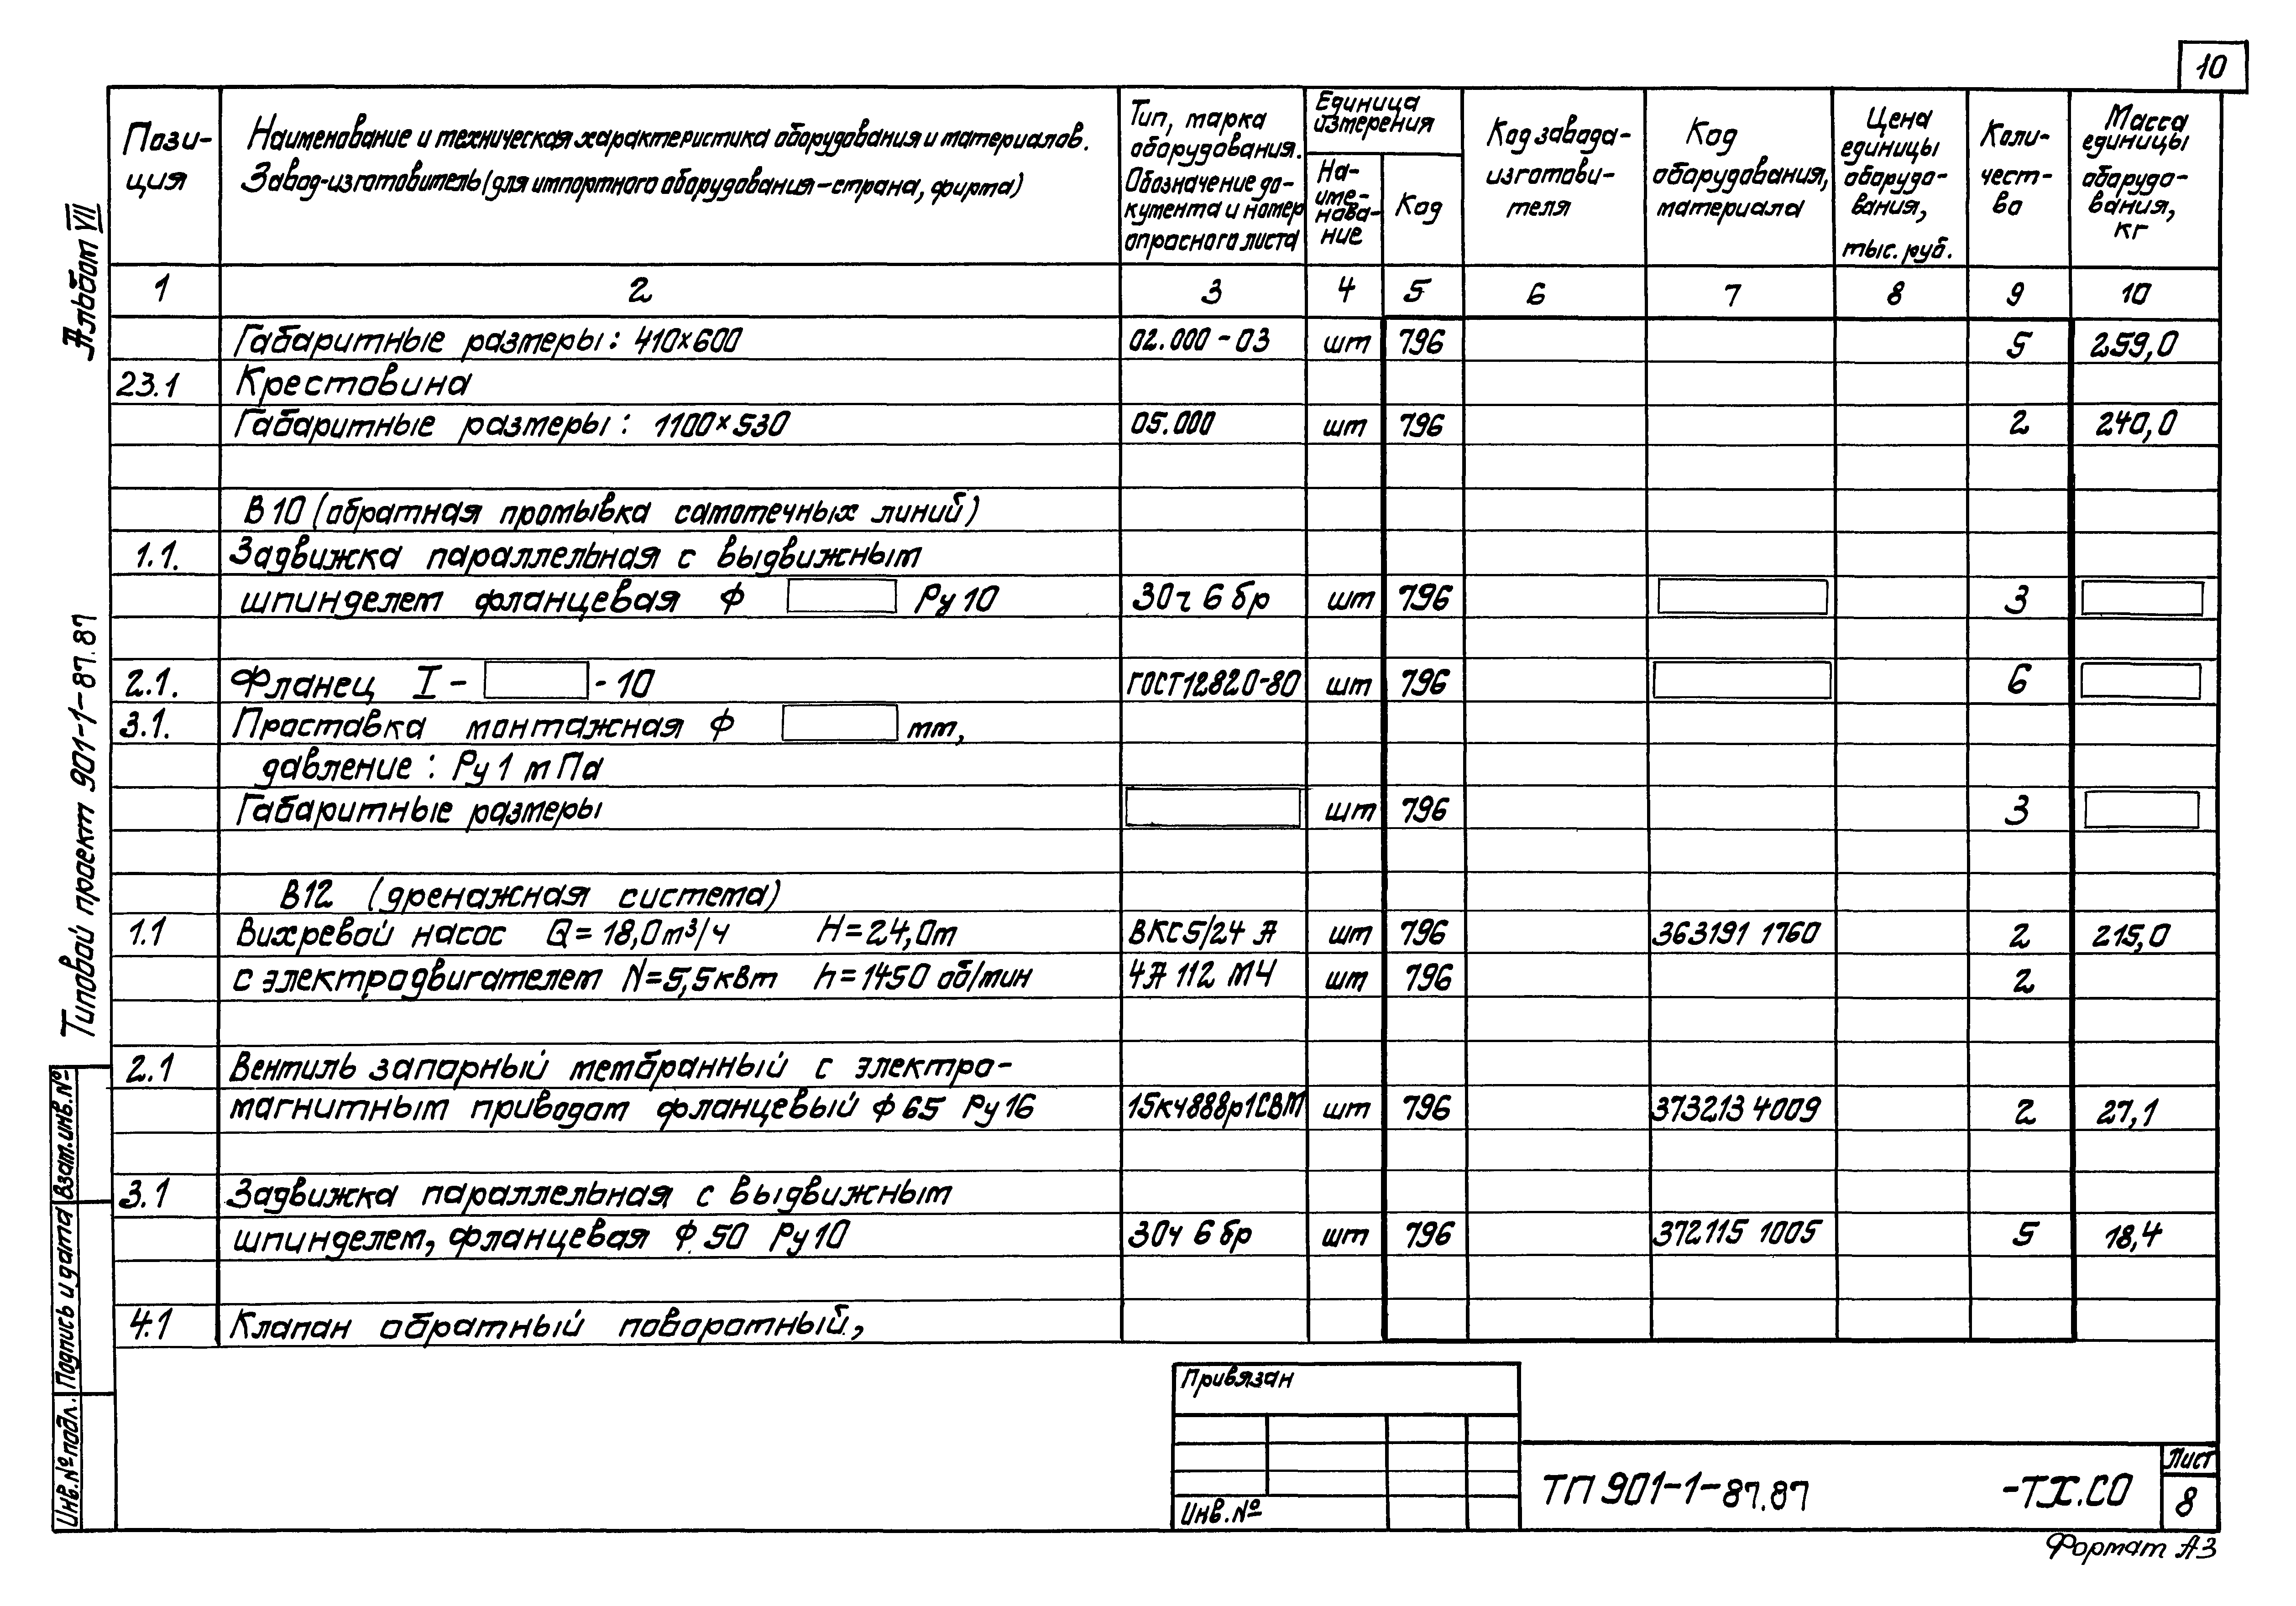 10
Пози-
ция
Наименование и техническая характеристика оборудования и материалов.
Завод-изготовитель (для импортного оборудования-страна, фирма)
Тип, марка
оборудования.
Обозначение до-
кумента и номер
опросного листа
Единица
измерения
На-
име-
нова-
ние
Код
Код завода-
изготови-
теля
Код
оборудования,
материала
Цена
единицы
оборудо-
вания,
тыс. руб.
Коли-
чест-
во
Масса
единицы
оборудо-
вания,
кг
1 2 3 4 5 6 7 8 9 10
Габаритные размеры: 410×600 02.000-03 шт 796 5 259,0
23.1 Крестовина
Габаритные размеры: 1100×530 05.000 шт 796 2 240,0
В10 (обратная промывка самотечных линий)
1.1. Задвижка параллельная с выдвижным
шпинделем фланцевая ф Ру 10 30ч 6 бр шт 796 3
2.1. Фланец I- -10 ГОСТ 12820-80 шт 796 6
3.1. Проставка монтажная ф мм,
давление: Ру 1 мПа
Габаритные размеры шт 796 3
В12 (дренажная система)
1.1 Вихревой насос Q=18,0м³/ч H=24,0м ВКС5/24 А шт 796 363191 1760 2 215,0
с электродвигателем N=5,5квт h=1450 об/мин 4А 112 М4 шт 796 2
2.1 Вентиль запорный мембранный с электро-
магнитным приводом фланцевый ф 65 Ру 16 15кч888р1СВМ шт 796 373213 4009 2 27,1
3.1 Задвижка параллельная с выдвижным
шпинделем, фланцевая ф 50 Ру 10 30ч 6 бр шт 796 372115 1005 5 18,4
4.1 Клапан обратный поворотный,
Альбом VII
Типовой проект 901-1-87.87
Взам.инв.№
Подпись и дата
Инв.№ подл.
Привязан
Инв.№
ТП 901-1-87.87 -ТХ.СО
Лист
8
Формат А3